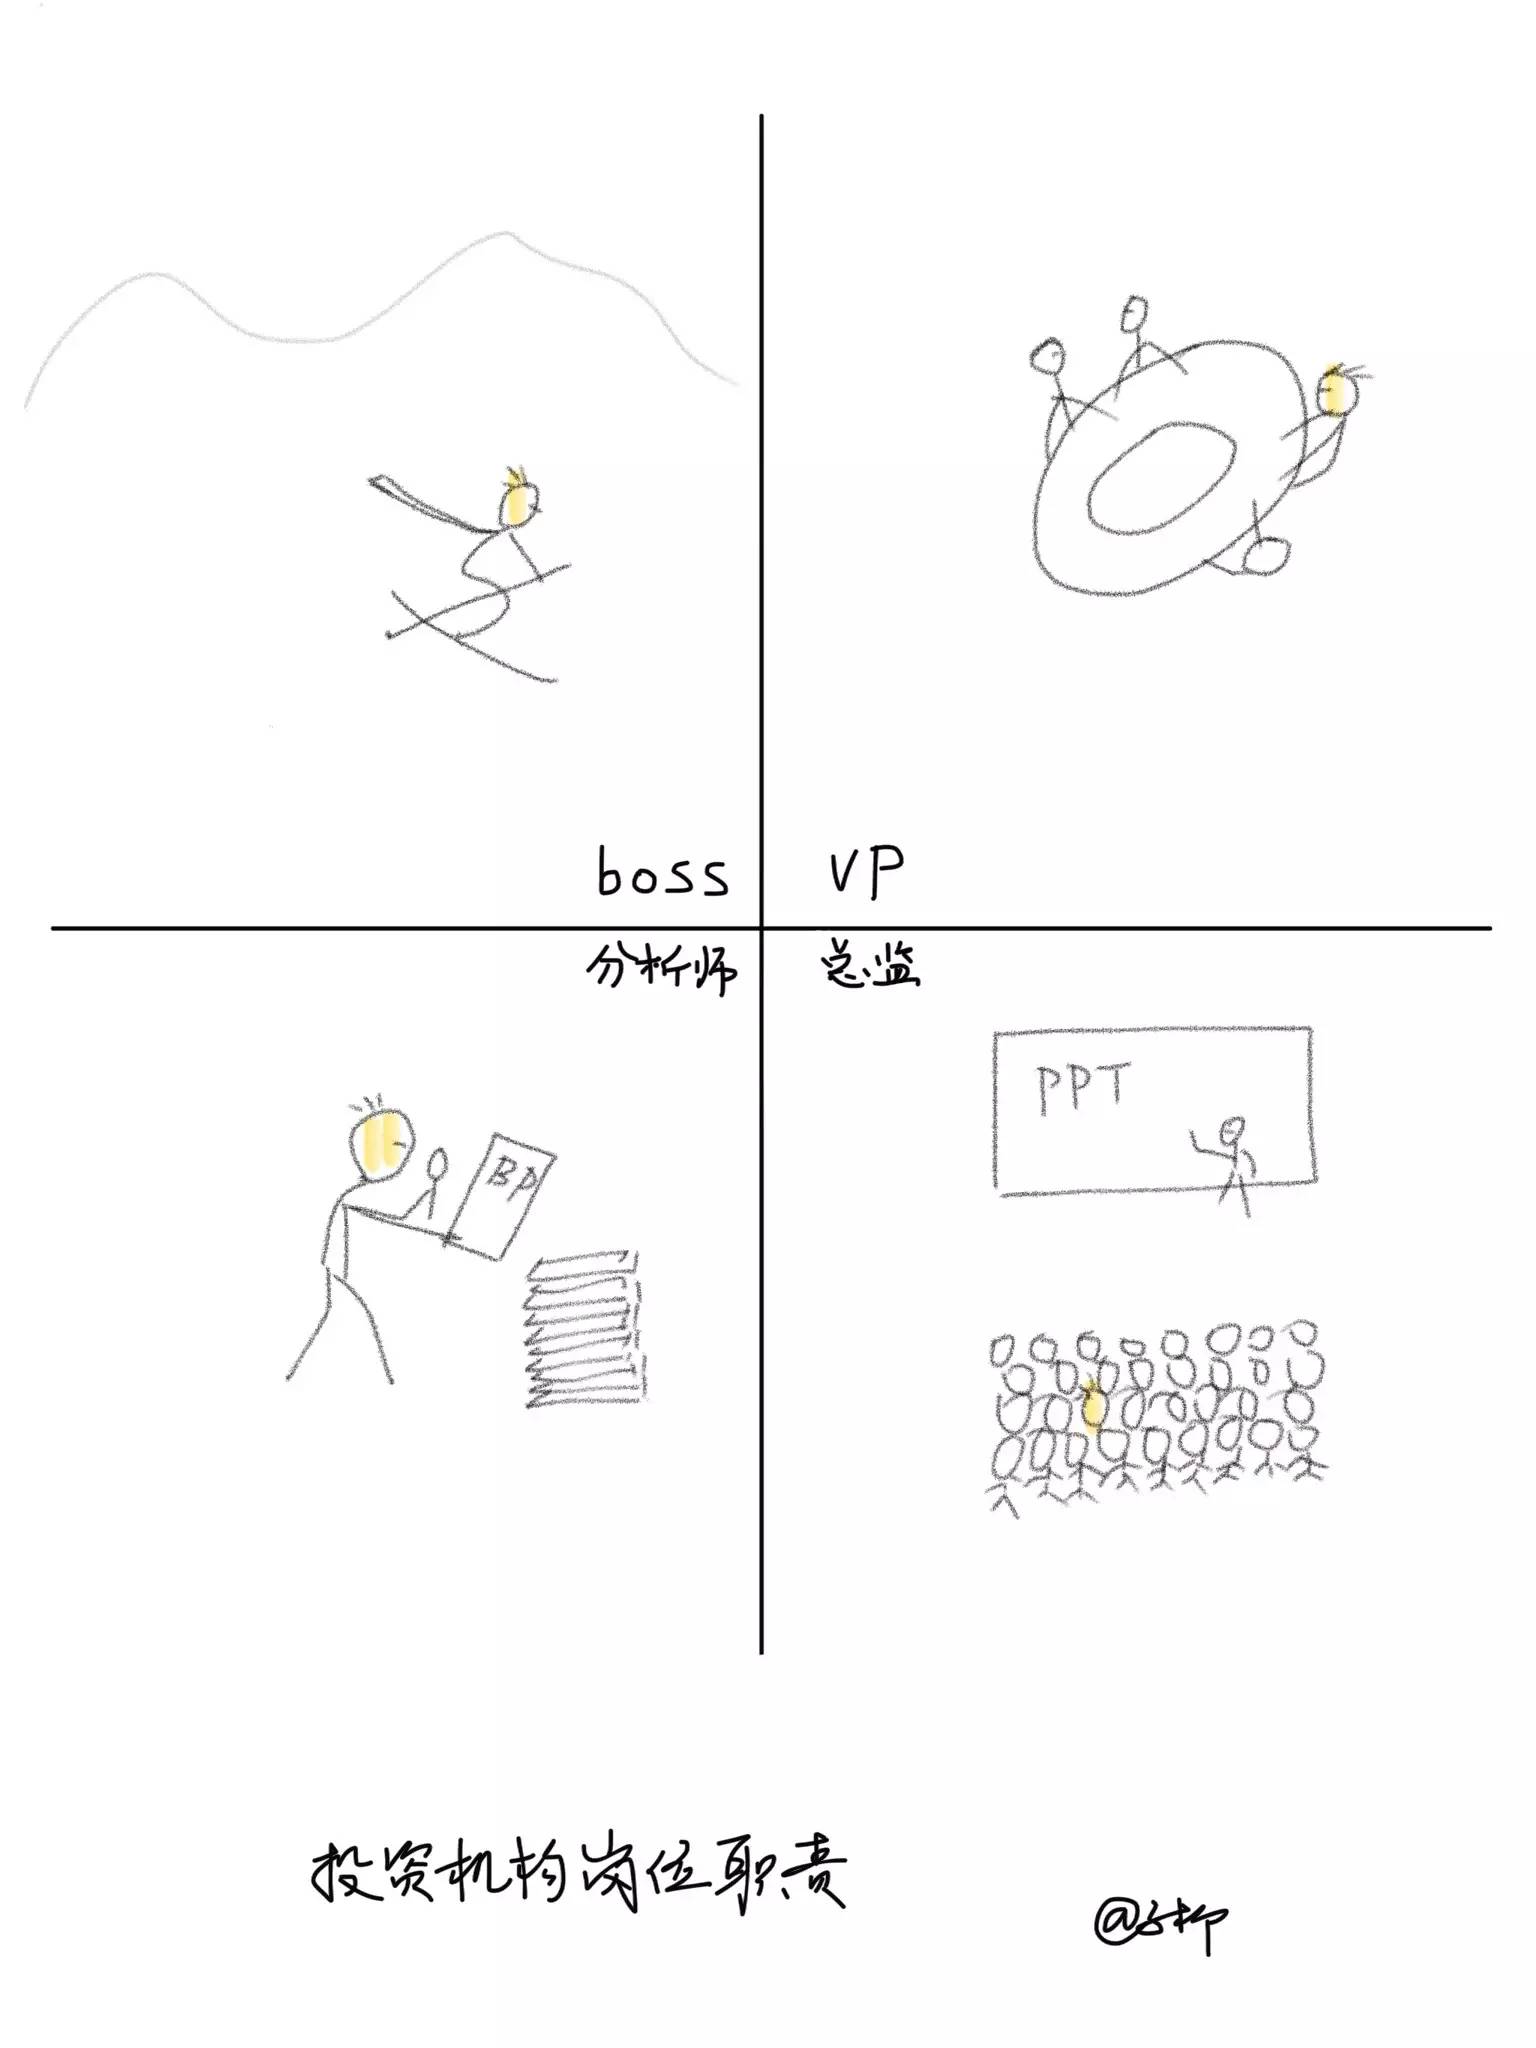 boss
VP
分析师
总监
PPT
BP
投资机构岗位职责
@子柳